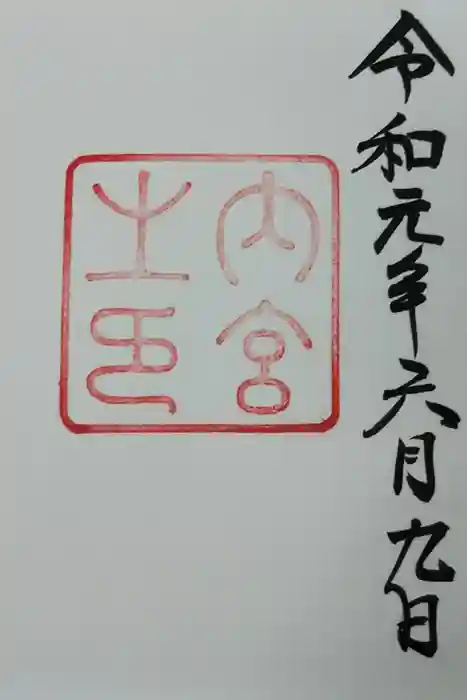 令和元年六月九日
内宮
之印